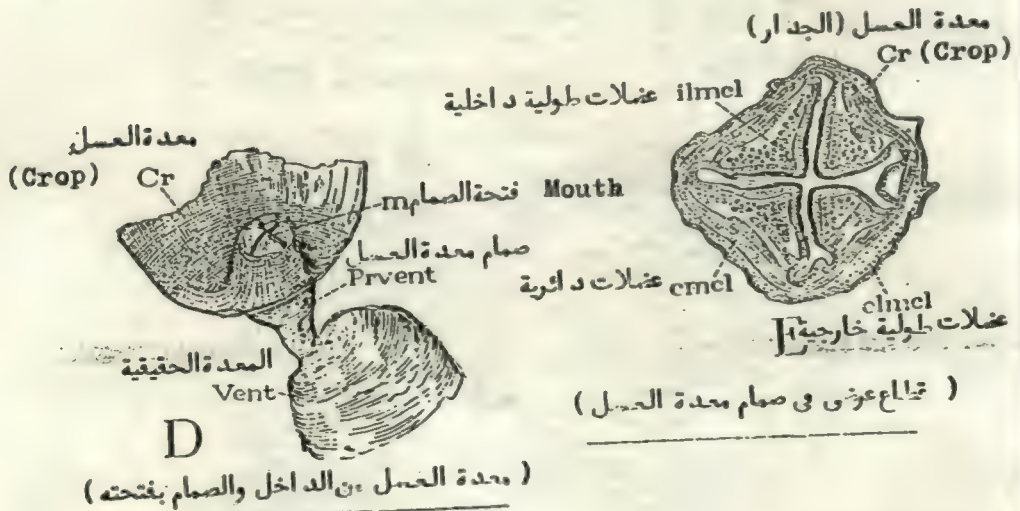 معدة العسل (الجدار)
Cr (Crop)
عضلات طولية داخلية ilmcl
معدة العسل
(Crop) Cr
m فتحة الصمام Mouth
صمام معدة العسل
Prvent
عضلات دائرية cmcl
elmcl
عضلات طولية خارجية E
المعدة الحقيقية
Vent
(قطاع عرضى فى صمام معدة العسل)
D
(معدة العسل من الداخل والصمام بفتحته)